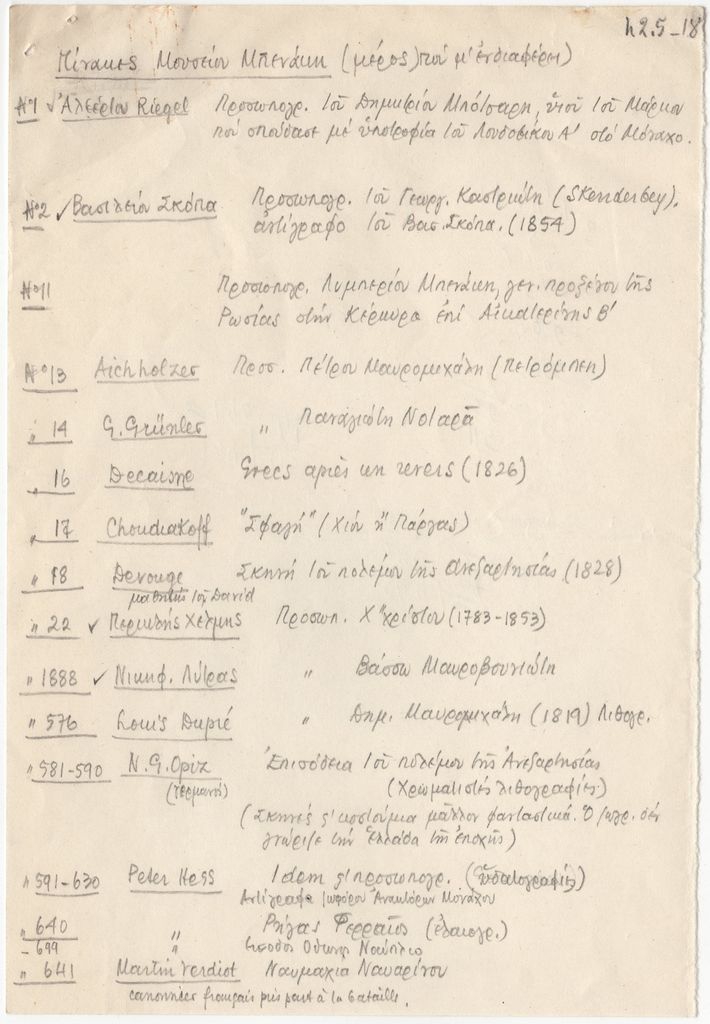 h2.5-18
Πίνακες Μουσείου Μπενάκη (μέρος) πού μ' ἐνδιαφέρει)
Nº1 ✓ Ἀλεερίου Riegel Προσωπογρ. τοῦ Δημητρίου Μπότσαρη, υἱοῦ τοῦ Μάρκου
πού σπούδασε μέ ὑποτροφία τοῦ Λουδοβίκου Α' στό Μόναχο.
Nº2 ✓ Βασιλείου Σκόπα Προσωπογρ. τοῦ Γεωργ. Καστριώτη (Skenderbey).
ἀντίγραφο τοῦ Βασ. Σκόπα. (1854)
Nº11 Προσωπογρ. Λυμπερίου Μπενάκη, γεν. προξένου τῆς
Ρωσίας στήν Κέρκυρα ἐπί Αἰκατερίνης Β'
Nº13 Aichholzer Προσ. Πέτρου Μαυρομιχάλη (Πετρόμπεη)
" 14 G. Grünler " Παναγιώτη Νοταρᾶ
" 16 Decaisne Grecs après un revers (1826)
" 17 Choudiakoff "Σφαγή" (Χίου ἤ Πάργας)
" 18 Devouge Σκηνή τοῦ πολέμου τῆς ἀνεξαρτησίας (1828)
μαθητής τοῦ David
" 22 ✓ Περικλῆς Χέλμης Προσωπ. Χ"χρίστου (1783-1853)
" 1888 ✓ Νικηφ. Λύτρας " Βάσσω Μαυροβουνιώτη
" 576 Louis Dupré " Δημ. Μαυρομιχάλη (1819) λιθογρ.
" 581-590 N.G. Opiz Ἐπεισόδεια τοῦ πολέμου τῆς Ἀνεξαρτησίας
(Γερμανός) (Χρωματιστές λιθογραφίες)
(Σκηνές ϛ' κοστούμια μᾶλλον φανταστικά. Ὁ ζωγρ. δέν
γνώριζε τήν Ἑλλάδα τῆς ἐποχῆς)
" 591-630 Peter Hess Idem ϛ' προσωπογρ. (ὑδατογραφίες)
Ἀντίγραφα Ἀνακτόρων Μονάχου
" 640 " Ρήγας Φερραῖος (ἐλαιογρ.)
- 699 " Εἴσοδος Ὄθωνος Ναύπλιο
" 641 Martin Verdiot Ναυμαχία Ναυαρίνου
canonnier français pris part à la bataille.